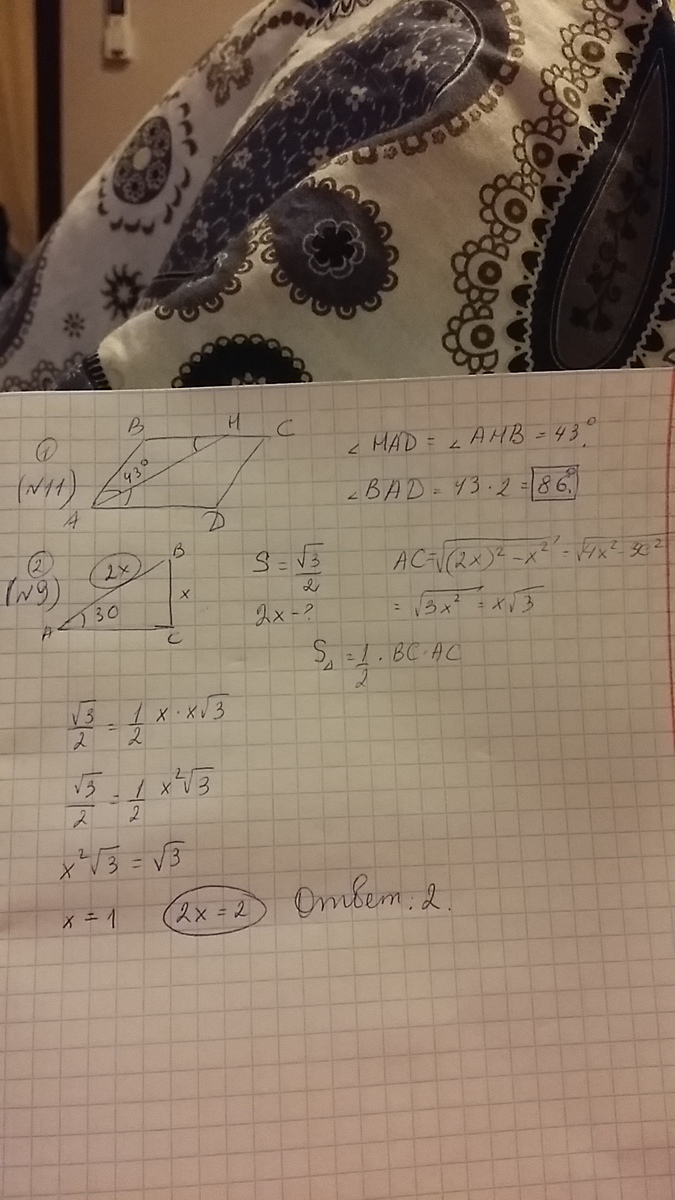 1
(N11)
B H C
43°
A D
∠ HAD = ∠ AHB = 43°.
∠ BAD = 43 · 2 = 86°.
2
(N9)
2x B
x
A 30 C
S = √3/2
2x - ?
AC = √((2x)² - x²) = √(4x² - x²)
= √(3x²) = x√3
S△ = 1/2 · BC · AC
√3/2 = 1/2 x · x√3
√3/2 = 1/2 x²√3
x²√3 = √3
x = 1 2x = 2 Ответ: 2.